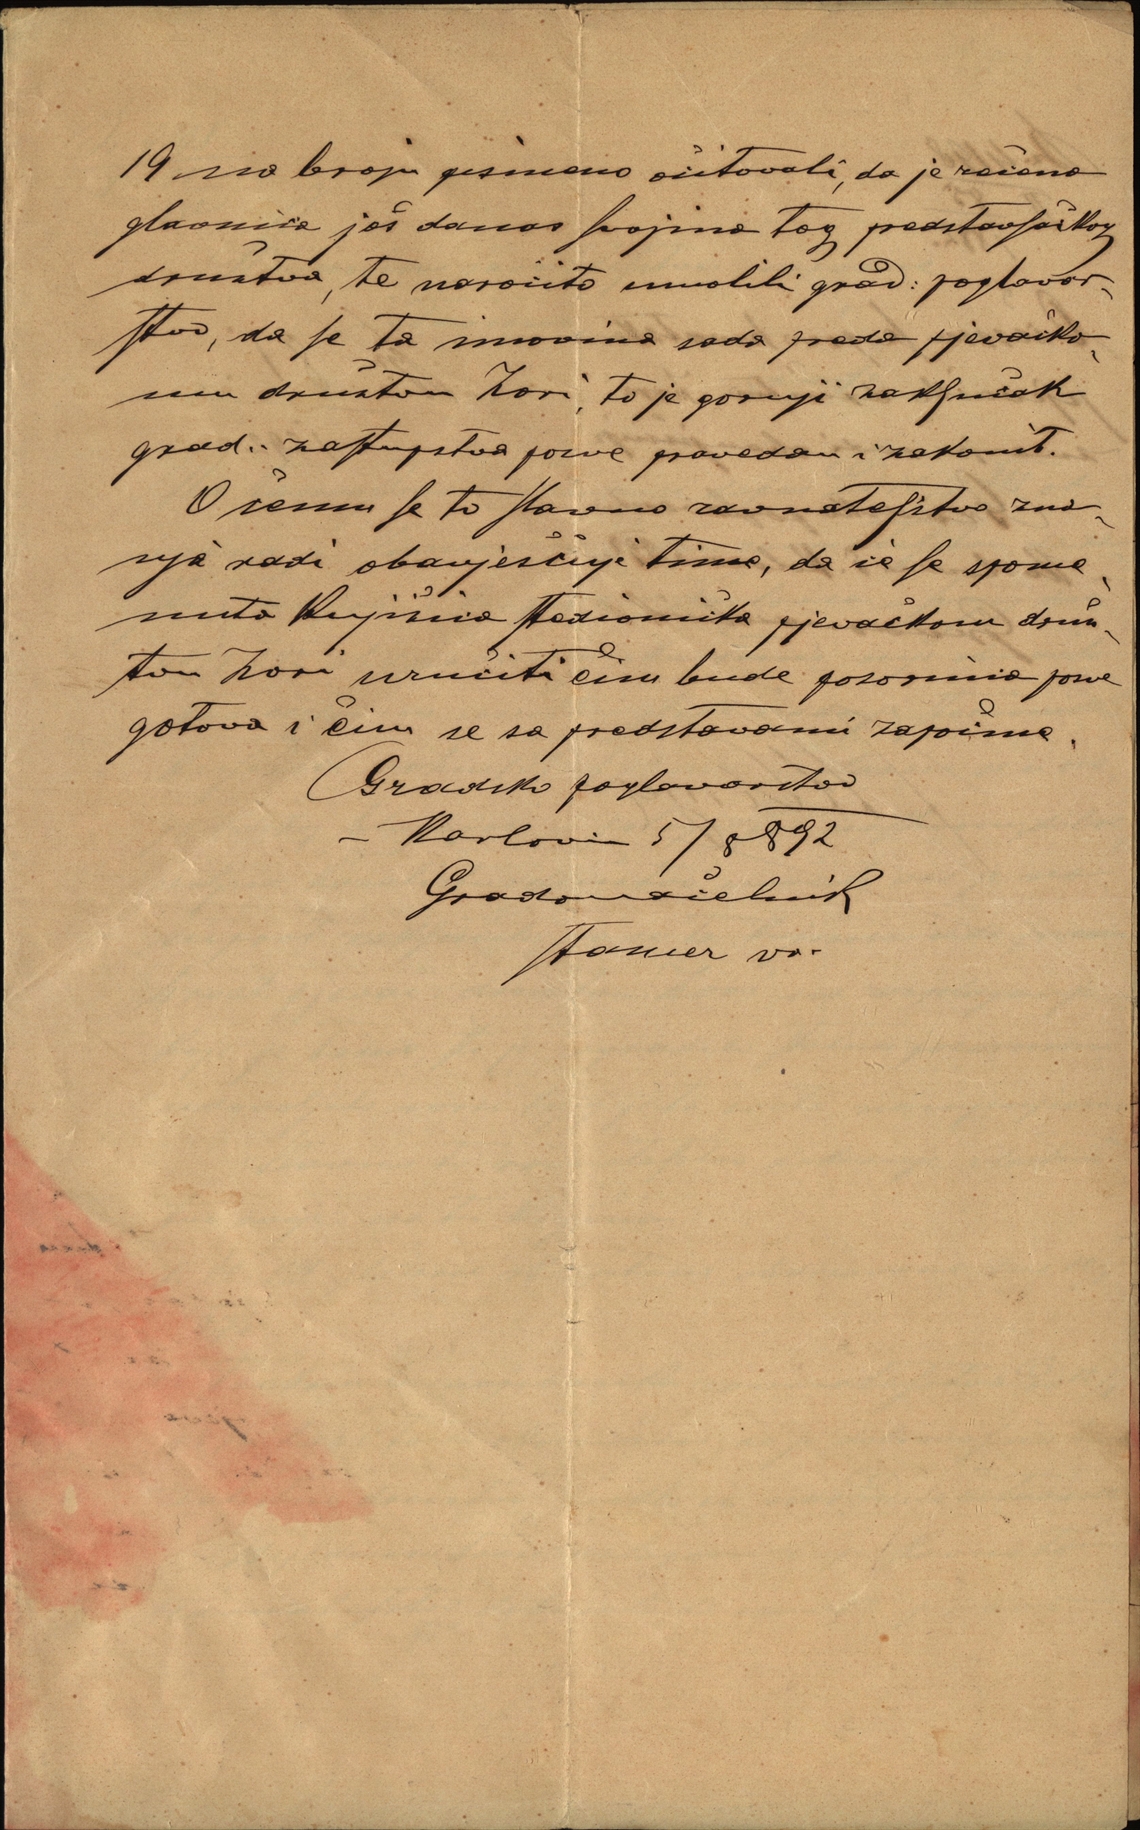 19 na broju pismeno očitovali, da je rečena
glavnica još danas svojina tog predstavljačkog
društva, te naročito umolili grad: poglavar-
stvo, da se ta imovina sada preda pjevačko-
mu društvu Zori, to je gornji zaključak
grad. zastupstva posve pravedan i zakonit.
O čemu se to slavno ravnateljstvo zna-
nja radi obavješćuje time, da će se spome-
nuta knjižica štedionička pjevačkom druš-
tvu Zori uručiti čim bude pozornica posve
gotova i čim se sa predstavami započme.
Gradsko poglavarstvo
Karlovac 5/8 892
Gradonačelnik
vr.